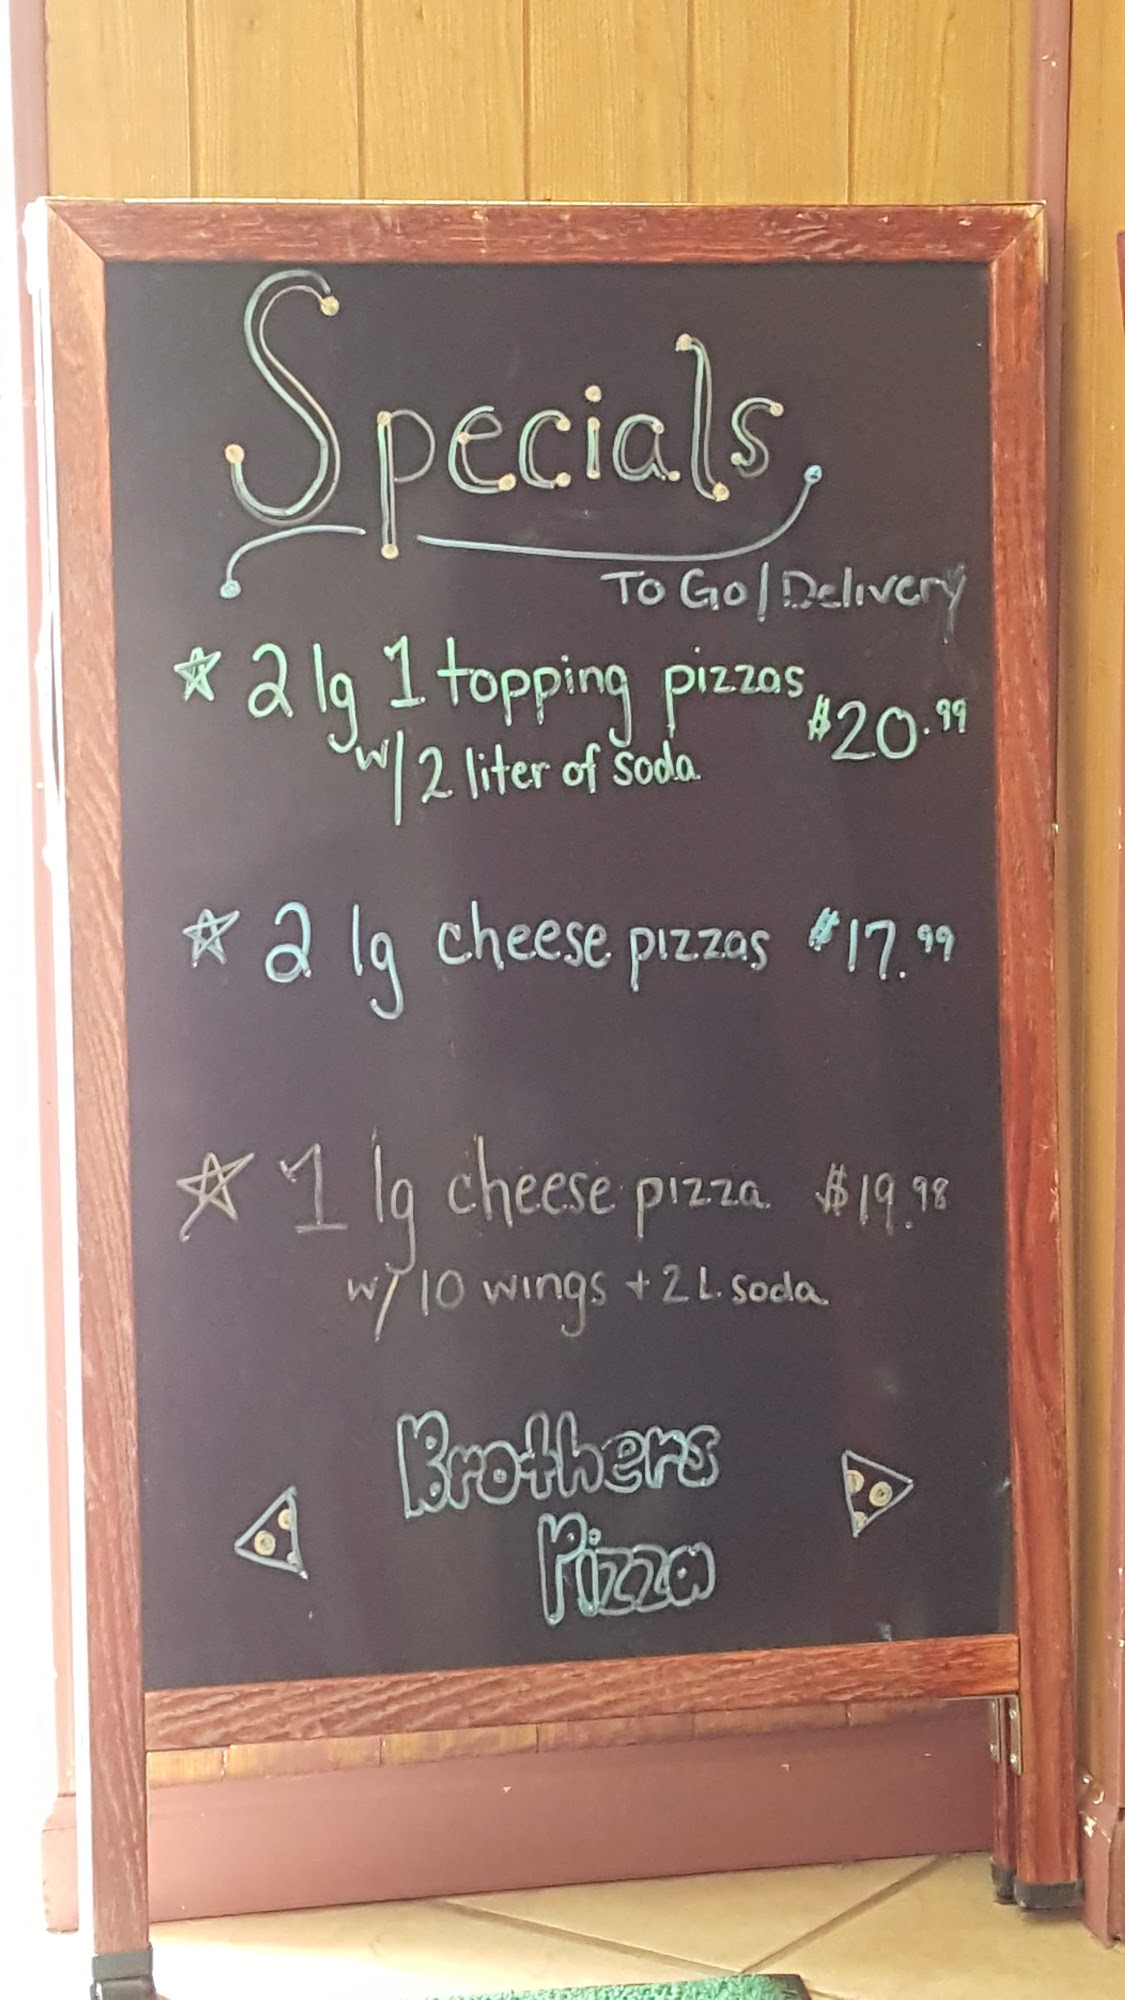 Specials
To Go/Delivery
☆ 2 lg 1 topping pizzas $20.99
w/ 2 liter of soda
☆ 2 lg cheese pizzas $17.99
☆ 1 lg cheese pizza $19.98
w/ 10 wings + 2 L. soda
Brothers
Pizza